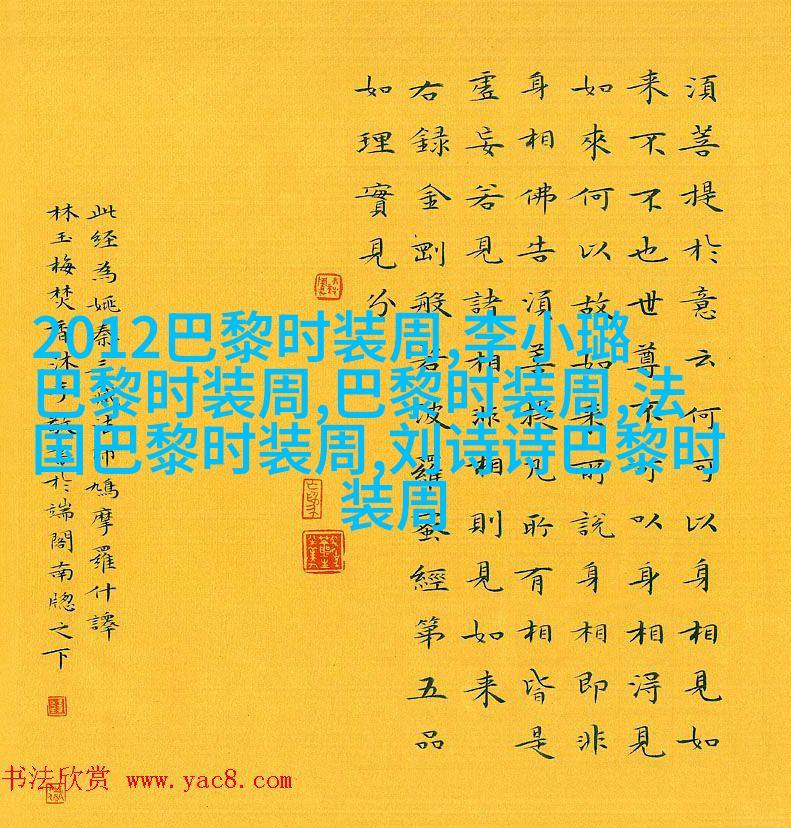 須菩提於意云何可以身相見如
来不不也世尊不可以身相淂見
如來何以故如来所說身相即非
身相佛告須菩提凡所有相皆是
虛妄若見諸相非相則見如来
右録金剛般若波羅蜜經第五品
如理實見分
此経為姚秦三藏法師鳩摩羅什譯
林玉梅焚香沐手敬書於端閣南牕之下
2012巴黎时装周,李小璐
巴黎时装周,巴黎时装周,法
国巴黎时装周,刘诗诗巴黎时
装周
书法欣赏 www.yac8.com